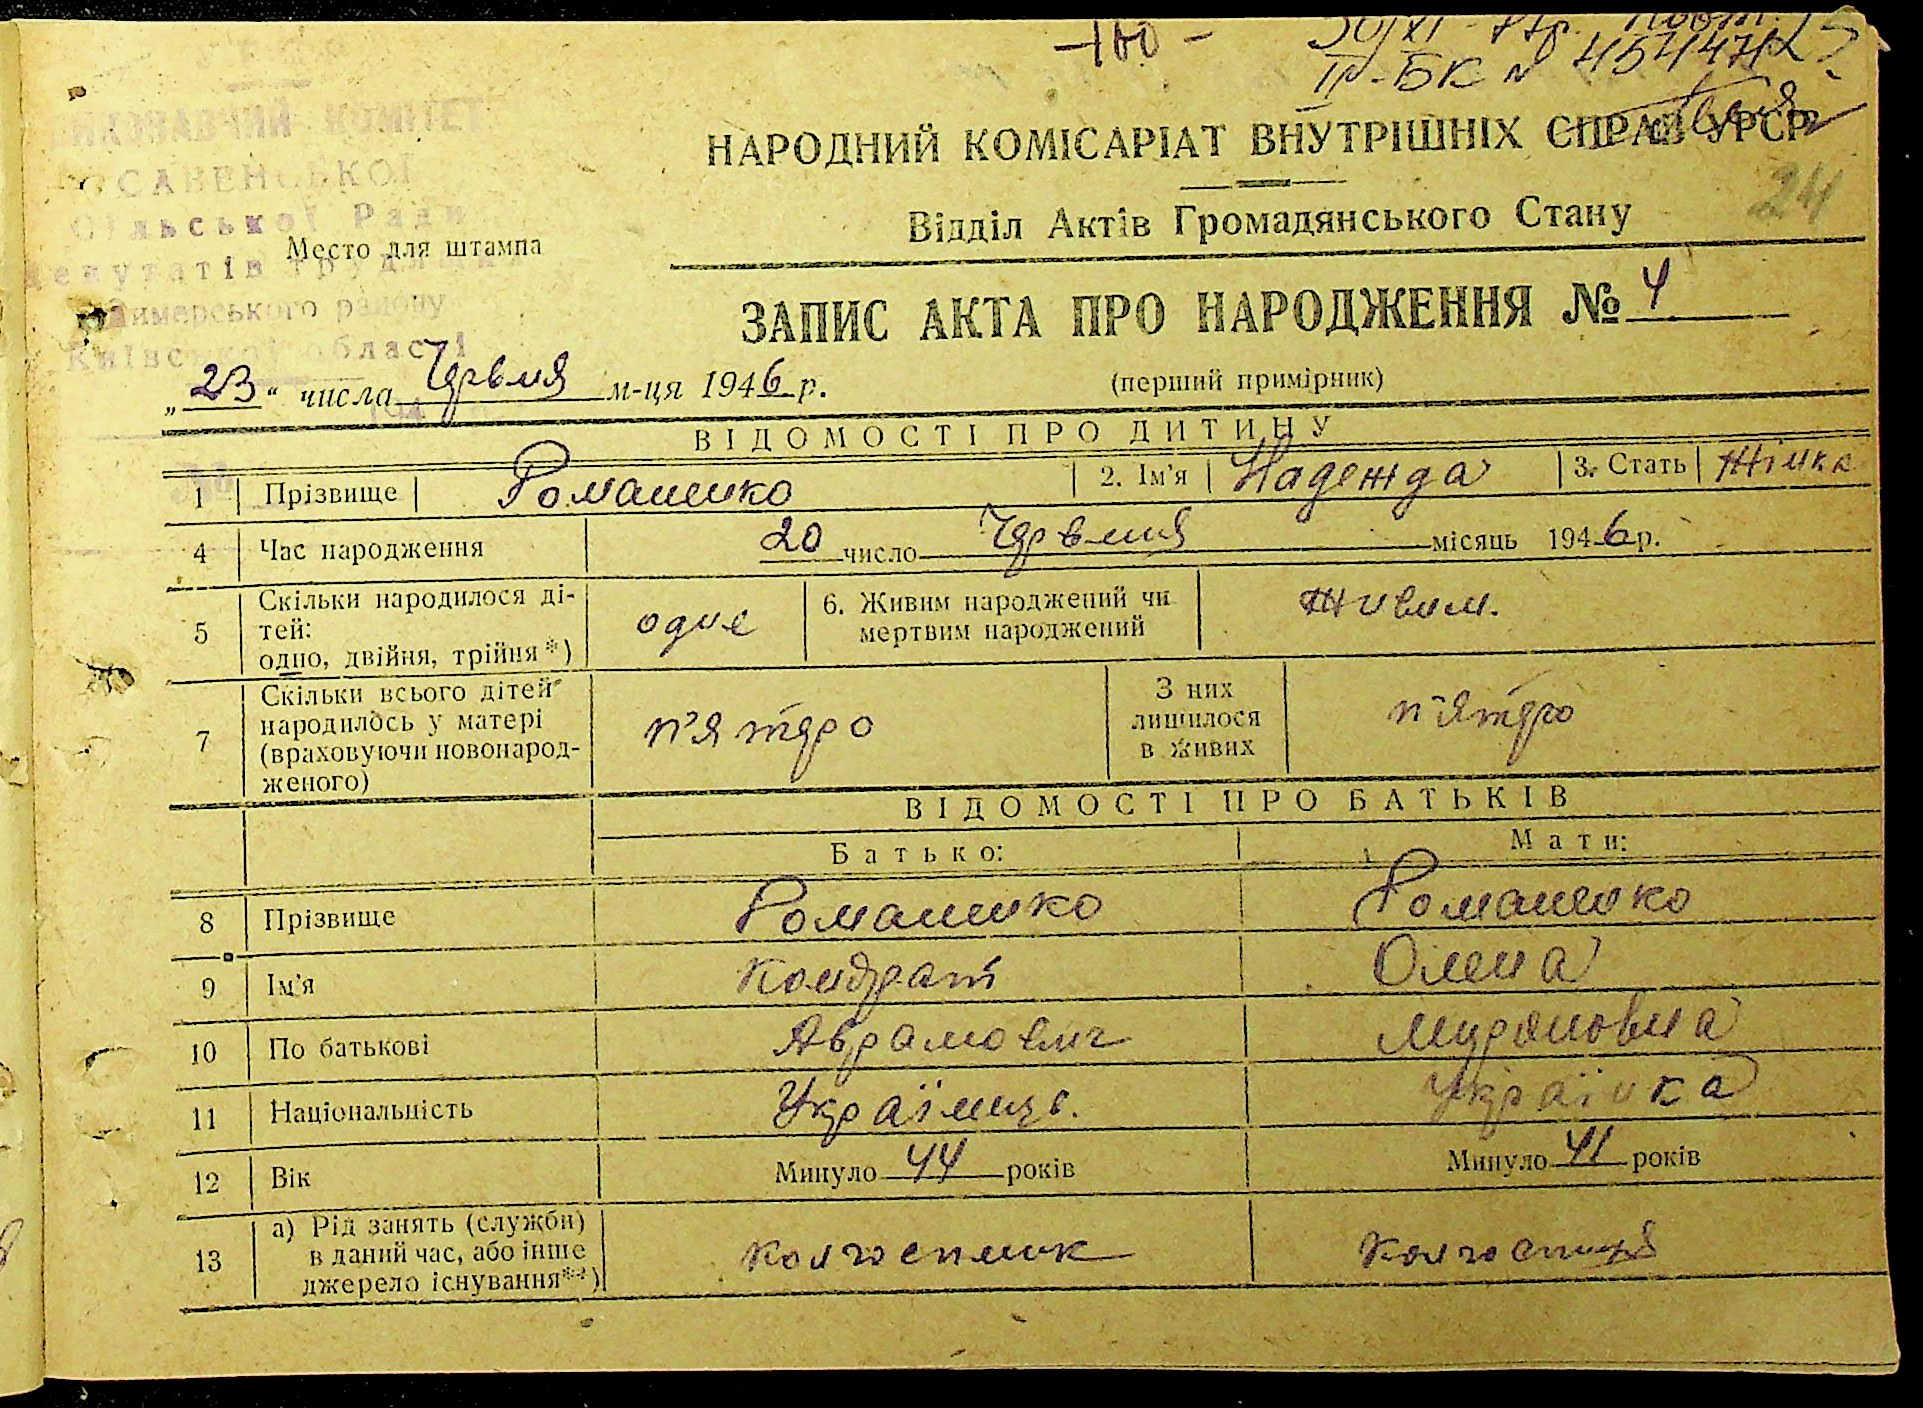 -100-
ІР-БК № 454474
НАРОДНИЙ КОМІСАРІАТ ВНУТРІШНІХ СПРАВ УРСР
24
Відділ Актів Громадянського Стану
КОМІТЕТ
Сільської Ради
Место для штампа
депутатів трудящих
Димерського району
Київської області
ЗАПИС АКТА ПРО НАРОДЖЕННЯ № 4
(перший примірник)
„23“ числа Червня м-ця 1946 р.
ВІДОМОСТІ ПРО ДИТИНУ
1 Прізвище Романенко 2. Ім'я Надежда 3. Стать Жінка
4 Час народження 20 число Червня місяць 1946 р.
5 Скільки народилося ді-
тей:
одно, двійня, трійня*) одне
6. Живим народжений чи
мертвим народжений Живим.
7 Скільки всього дітей
народилось у матері
(враховуючи новонарод-
женого) п'ятеро
З них
лишилося
в живих п'ятеро
ВІДОМОСТІ ПРО БАТЬКІВ
Батько: Мати:
8 Прізвище Романенко Романенко
9 Ім'я Кондрат Олена
10 По батькові Аврамович
11 Національність Українець. Українка
12 Вік Минуло 44 років Минуло 41 років
13 а) Рід занять (служби)
в даний час, або інше
джерело існування**) колгоспник колгоспниця